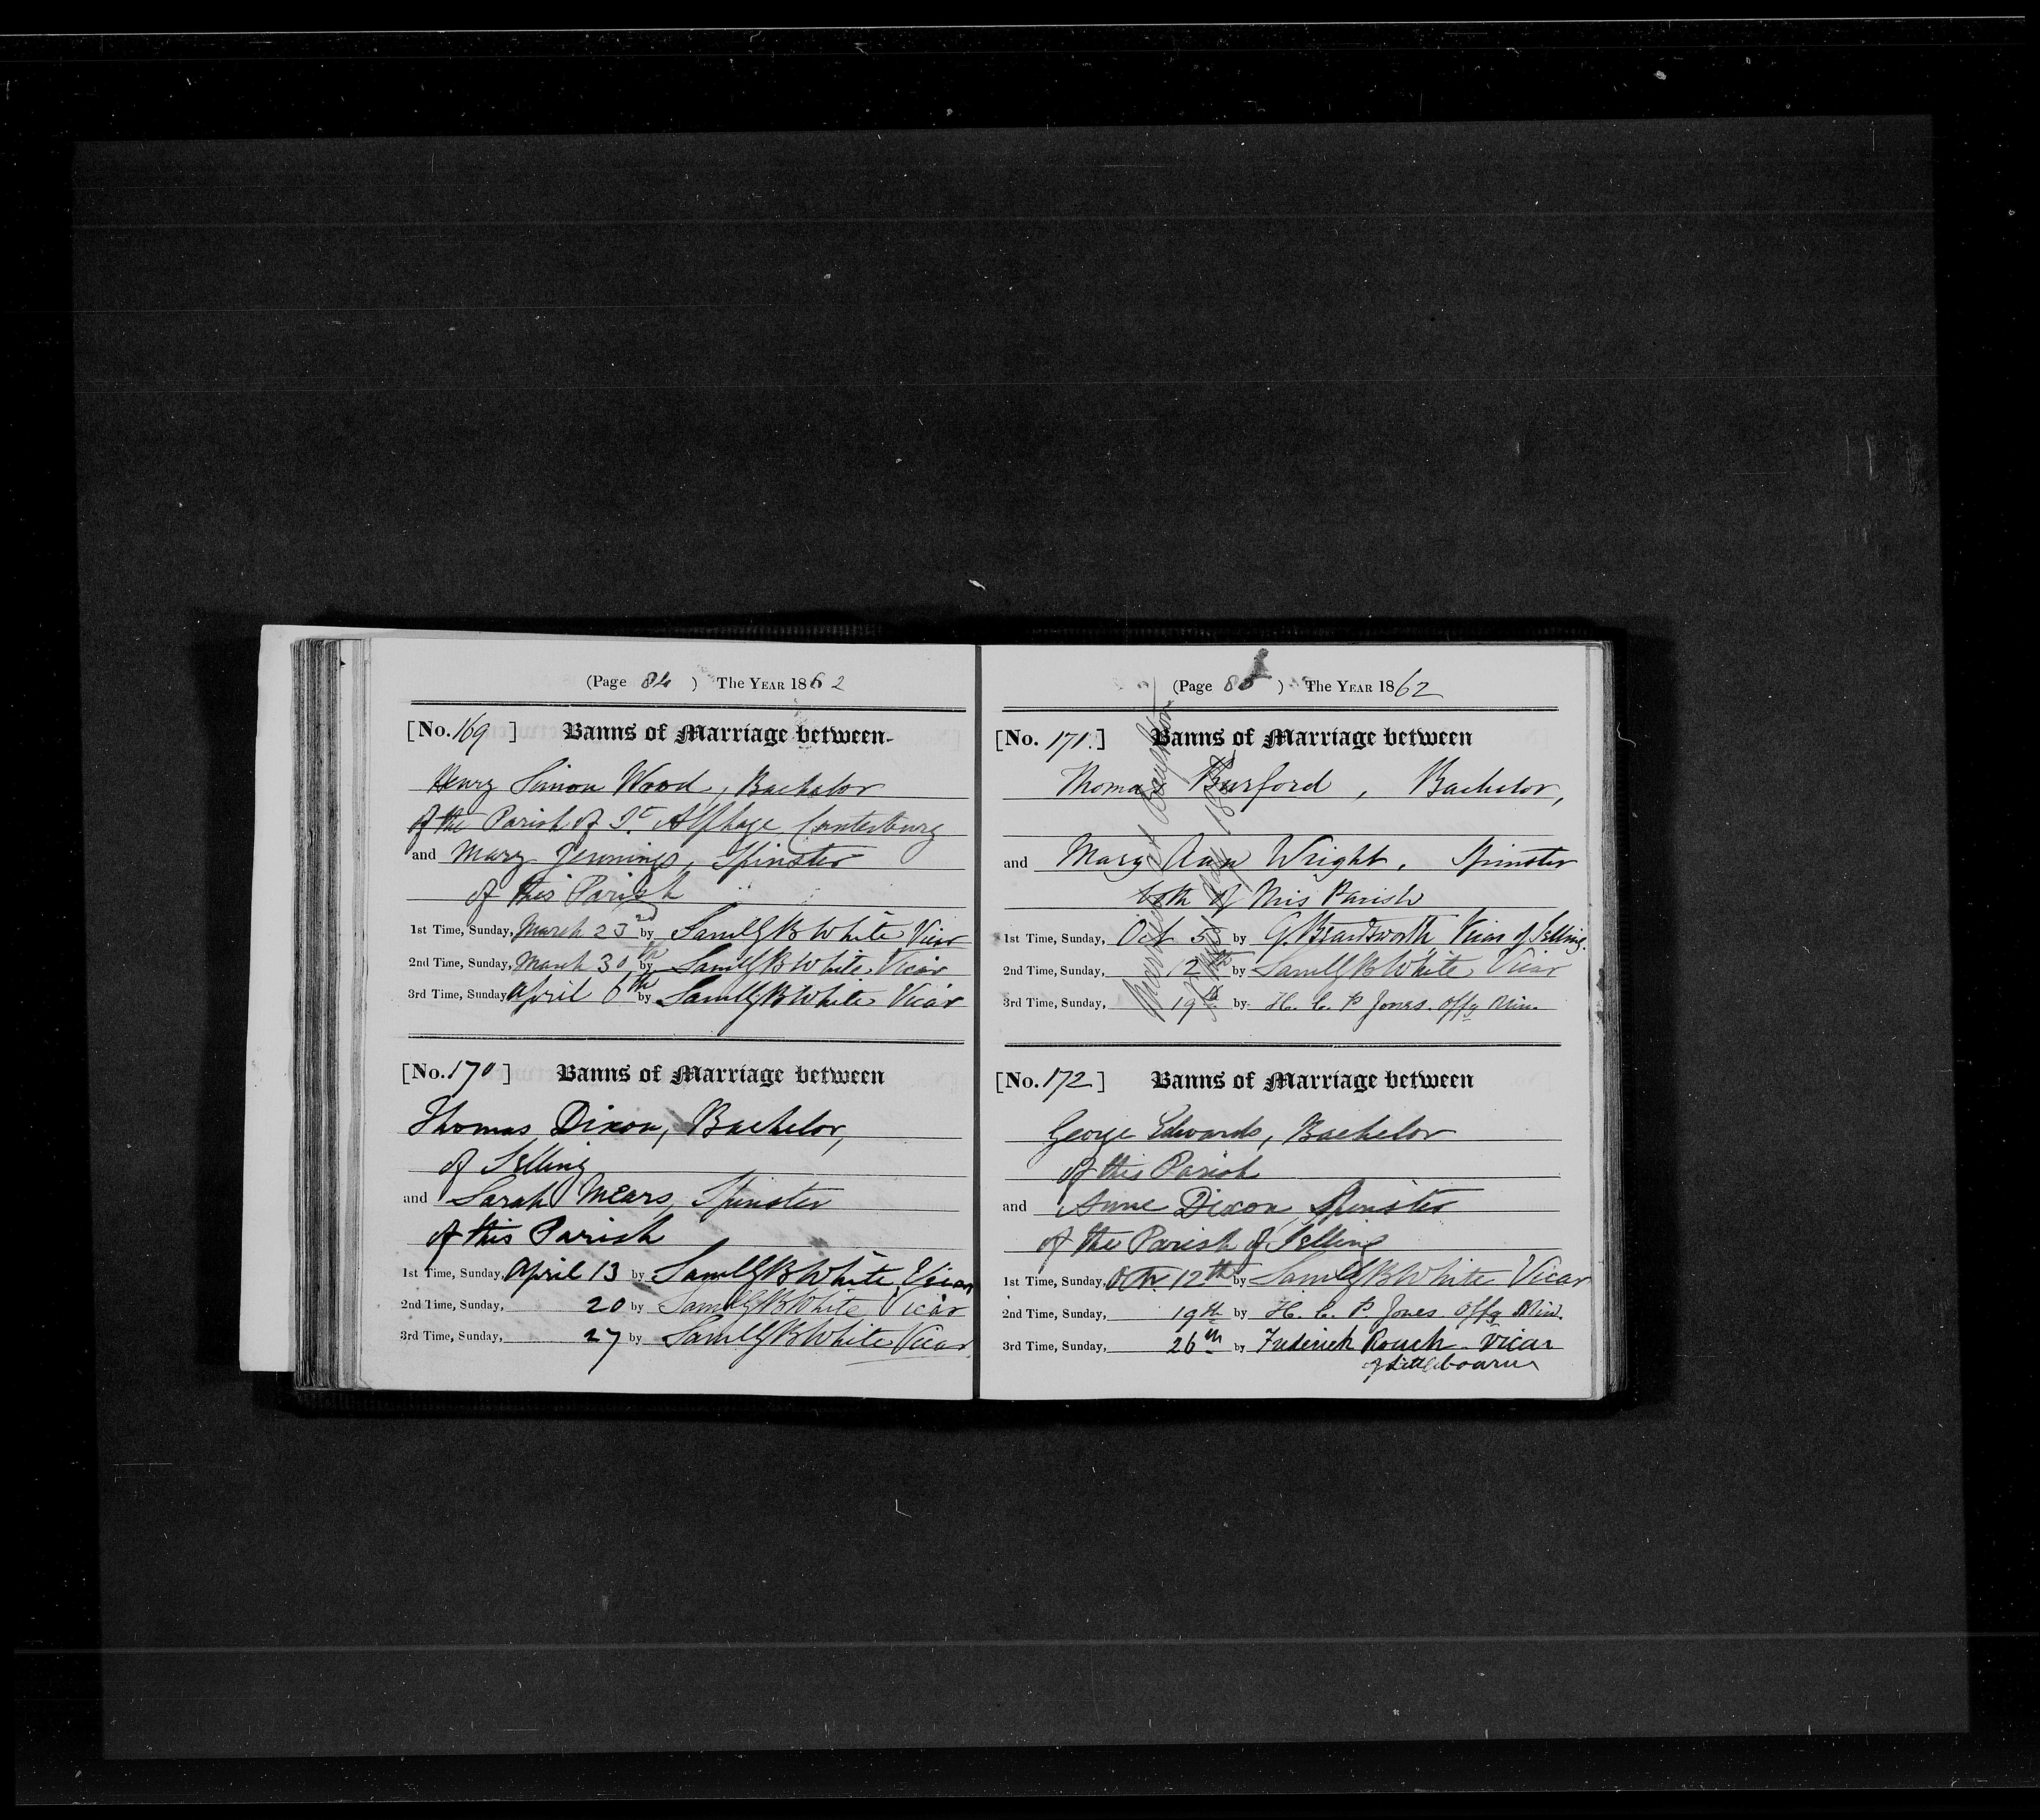 (Page 84 ) The YEAR 1862
[No. 169 ] Banns of Marriage between
Henry Simon Wood, Bachelor
of the Parish of St Alphage Canterbury
and Mary Jennings, Spinster
of this Parish
1st Time, Sunday, March 23rd by Samll G B White, Vicar
2nd Time, Sunday, March 30th by Samll G B White Vicar
3rd Time, Sunday April 6th by Samll G B White Vicar
[No. 170 ] Banns of Marriage between
Thomas Dixon, Bachelor,
of Selling
and Sarah Mears, Spinster
of this Parish
1st Time, Sunday, April 13 by Samll G B White, Vicar
2nd Time, Sunday, 20 by Samll G B White Vicar
3rd Time, Sunday, 27 by Samll G B White Vicar
(Page 85 ) The YEAR 1862
[No. 171.] Banns of Marriage between
Thomas Burford, Bachelor,
and Mary Ann Wright, Spinster
both of this Parish
1st Time, Sunday, Oct 5 by G. Beardsworth, Vicar of Selling.
2nd Time, Sunday, 12th by Samll G B White Vicar
3rd Time, Sunday, 19th by H. C. P Jones. Offg Min.
Married at Boughton
[No. 172 ] Banns of Marriage between
George Edwards, Bachelor
of this Parish
and Anne Dixon, Spinster
of the Parish of Selling
1st Time, Sunday, Oct. 12th by Samll G B White Vicar
2nd Time, Sunday, 19th by H. C. P Jones Offg Min.
3rd Time, Sunday, 26th by Frederick Rouch Vicar
of Littlebourne